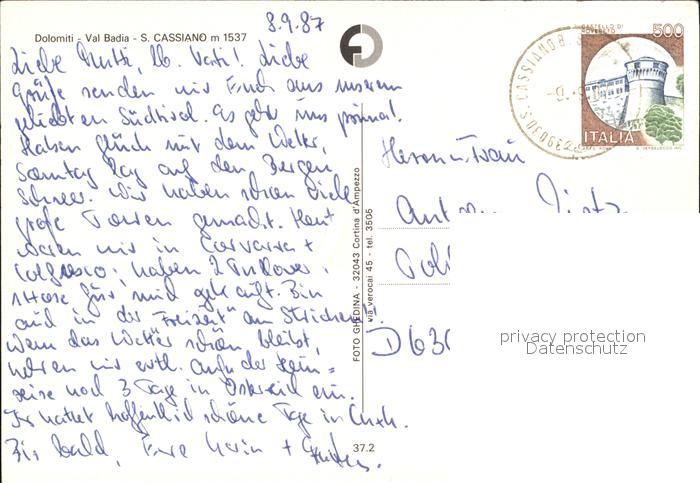 8.9.87
Dolomiti - Val Badia - S. CASSIANO m 1537
Liebe Mutti, lb. Vati! Liebe
Grüße senden wir Euch aus unserem
geliebten Südtirol. Es geht uns prima!
Haben Glück mit dem Wetter,
Sonntag lag auf den Bergen
Schnee. Wir haben schon viele
große Touren gemacht. Heut
waren wir in Corvara +
Colfosco; haben 2 Pullover +
1 Hose für mich gekauft. Bin
auch in der "Freizeit" am Stricken.
Wenn das Wetter schön bleibt,
kehren wir evtl. auf der Heim=
reise noch 3 Tage in Österreich ein.
Ihr hattet hoffentlich schöne Tage in
Bis bald, Eure + 
FOTO GHEDINA - 32043 Cortina d'Ampezzo
via verocai 45 - tel. 3505
37.2
CASTELLO DI
ROVERETO
500
ITALIA
S. CASSIANO
Herrn u. Frau
D 630
privacy protection
Datenschutz